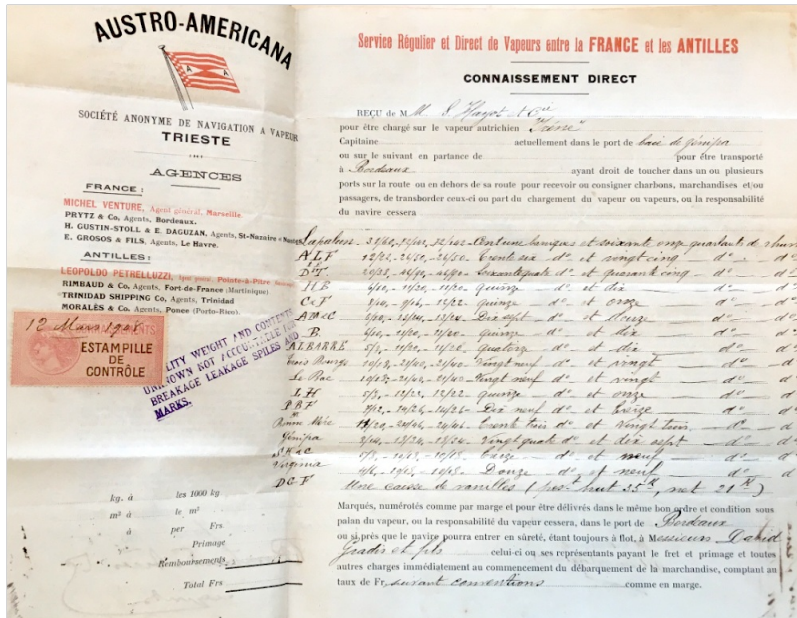 AUSTRO-AMERICANA
A A
SOCIÉTÉ ANONYME DE NAVIGATION A VAPEUR
TRIESTE
AGENCES
FRANCE :
MICHEL VENTURE, Agent général, Marseille.
PRYTZ & Co, Agents, Bordeaux.
H. GUSTIN-STOLL & E. DAGUZAN, Agents, St-Nazaire et Nantes
E. GROSOS & FILS, Agents, Le Havre.
ANTILLES :
LEOPOLDO PETRELLUZZI, Pointe-à-Pitre
RIMBAUD & Co, Agents, Fort-de-France (Martinique)
TRINIDAD SHIPPING Co, Agents, Trinidad
MORALÈS & Co, Agents, Ponce (Porto-Rico).
12 Mars 1908
ESTAMPILLE
DE
CONTRÔLE
QUALITY WEIGHT AND CONTENTS
UNKNOWN NOT ACCOUNTABLE FOR
BREAKAGE LEAKAGE SPILES AND
MARKS.
kg. à les 1000 kg
m² à le m²
à per Frs
Primage
Remboursements
Total Frs
Service Régulier et Direct de Vapeurs entre la FRANCE et les ANTILLES
CONNAISSEMENT DIRECT
REÇU DE M M. Hayot & Cie
pour être chargé sur le vapeur autrichien "Irène"
Capitaine actuellement dans le port de baie de génipa
ou sur le suivant en partance de pour être transporté
à Bordeaux ayant droit de toucher dans un ou plusieurs
ports sur la route ou en dehors de sa route pour recevoir ou consigner charbons, marchandises et/ou
passagers, de transborder ceux-ci ou part du chargement du vapeur ou vapeurs, ou la responsabilité
du navire cessera
et soixante onze quartants de rhum
ALF Trente six do et vingt cinq do do
DT Soixante quatre do et quarante cinq do do
HB quinze do et dix do do
C&F quinze do et onze do do
AM&C Dix sept do et douze do do
B. quinze do et dix do do
ALBARRÉ Quatorze do et dix do do
Trois Bourgs Vingt neuf do et vingt do do
Le Bac Vingt neuf do et vingt do do
LH quinze do et onze do do
PBF Dix neuf do et treize do do
Trente trois do et Vingt trois do do
Génipa Vingt quatre do et dix sept do do
Treize do et neuf do do
Virginia Douze do et neuf do do
DGF Une caisse de vanilles (pest brut 35K, net 21K)
Marqués, numérotés comme par marge et pour être délivrés dans le même bon ordre et condition sous
palan du vapeur, ou la responsabilité du vapeur cessera, dans le port de Bordeaux
ou si près que le navire pourra entrer en sûreté, étant toujours à flot, à Messieurs David
Gradis et fils celui-ci ou ses représentants payant le fret et primage et toutes
autres charges immédiatement au commencement du débarquement de la marchandise, comptant au
taux de Fr. suivant conventions comme en marge.